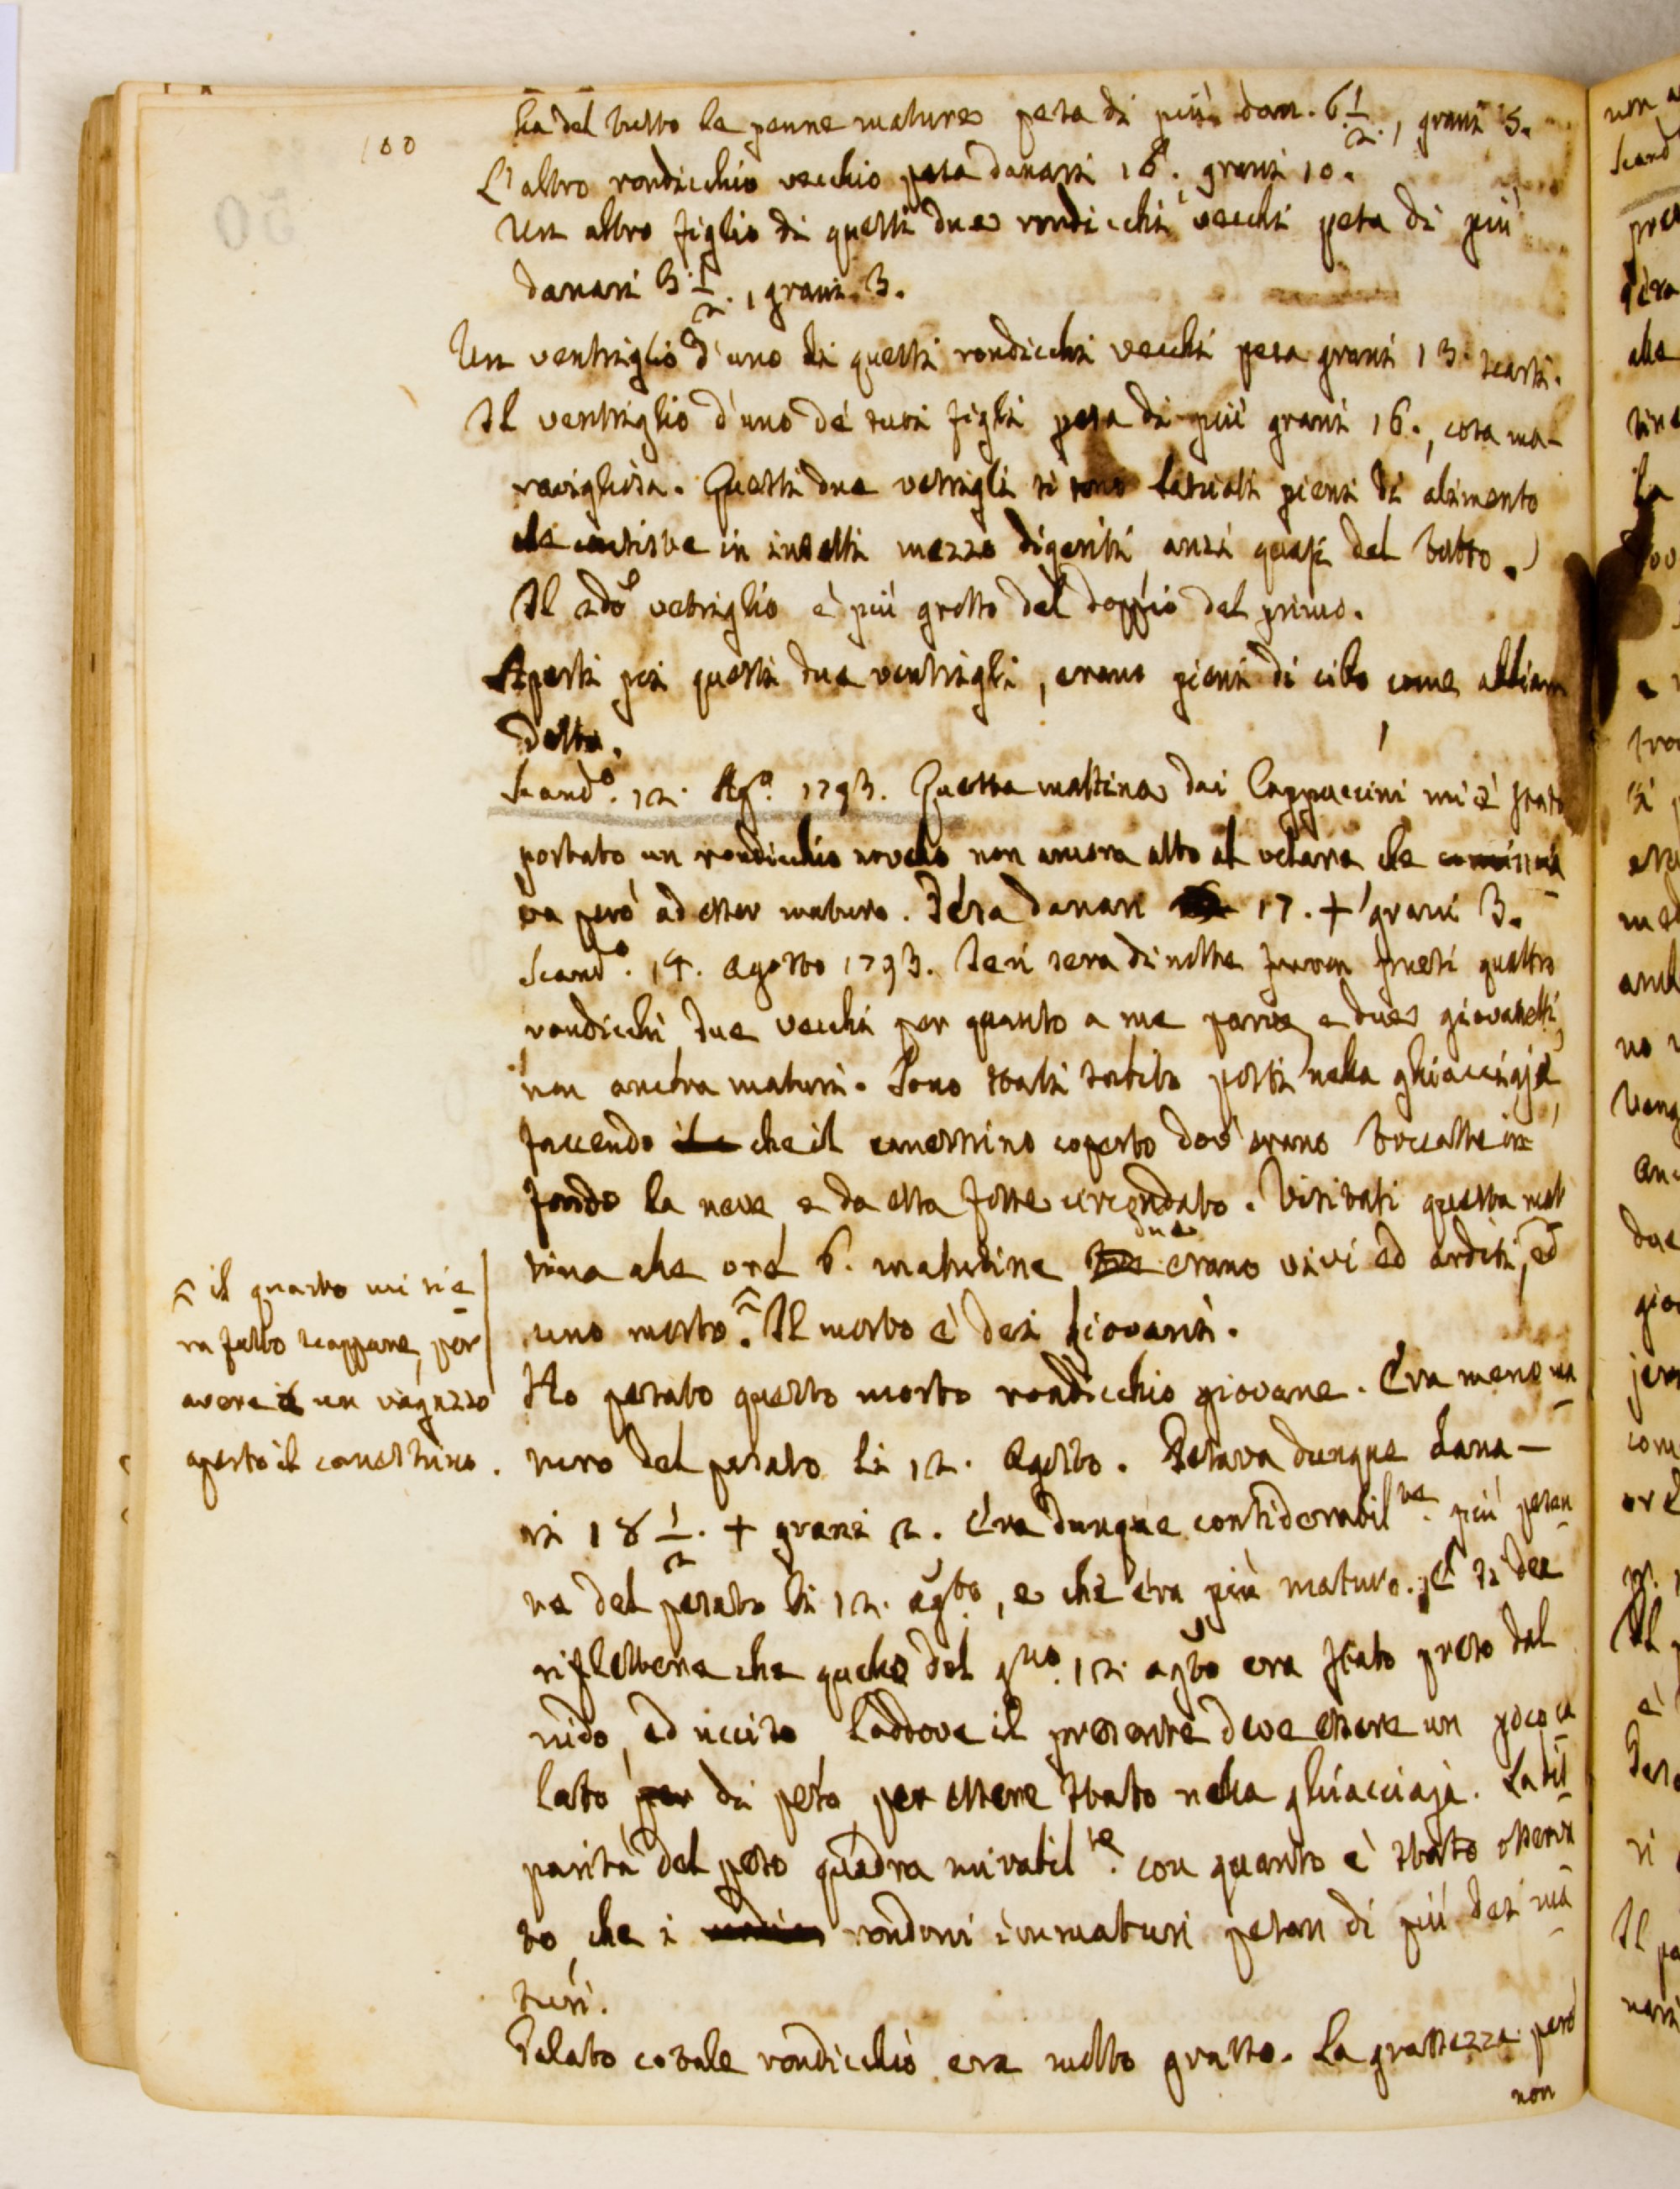 100
ha del tutto le penne mature pesa di più dan. 6 1/2., grani 5.
L'altro rondicchio vecchio pesa danari 16. grani 10.
Un altro figlio di questi due rondicchi vecchi pesa di più
danari 3 1/2., grani 3.
Un ventriglio d'uno di questi rondicchi vecchi pesa grani 13 scarsi.
Il ventriglio d'uno de' suoi figli pesa di più grani 16., cosa ma-
ravigliosa. Questi due vetrigli si sono lasciati pieni di alimento
che consiste in insetti mezzo digeriti anzi quasi del tutto.
Il 2do vetriglio è più grosso del doppio del primo.
Aperti poi questi due ventrigli, erano pieni di cibo come abbiam
detto.
Scando. 12. Ago. 1793. Questa mattina dai Cappuccini mi è stato
portato un rondicchio novello non ancora atto al volare che comincia
va però ad esser maturo. Pesa danari 17. + grani 3.
Scando. 14. Agosto 1793. Ieri sera di notte furon presi quattro
rondicchi due vecchi per quanto a me parve e due giovanetti,
non ancora maturi. Sono stati subito posti nella ghiacciaja,
facendo che il canestrino coperto dov'erano toccasse in
fondo la neve e da essa fosse circondato. Visitati questa mat
tina alle ore 6. matutine due erano vivi ed arditi, ed
uno morto. ^ Il morto è dei giovani.
^ il quarto mi si e
ra fatto scappare, per
avere un ragazzo
aperto il canestrino.
Ho pesato questo morto rondicchio giovane. Era meno ma
turo del pesato li 12. Agosto. Pesava dunque dana-
ri 18 1/2. + grani 2. Era dunque considerabilme. più pesan
te del pesato li 12. agto, e che era più maturo. E si dee
riflettere che quello del gno. 12. agto era stato preso dal
nido, ed ucciso laddove il presente deve essere un poco ca
lato di peso per essere stato nella ghiacciaja. La dis
parità del peso quadra mirabilte. con quanto è stato osserva
to, che i rondoni immaturi pesan di più dei ma
turi.
Pelato cotale rondicchio era molto grasso. La grassezza però
non